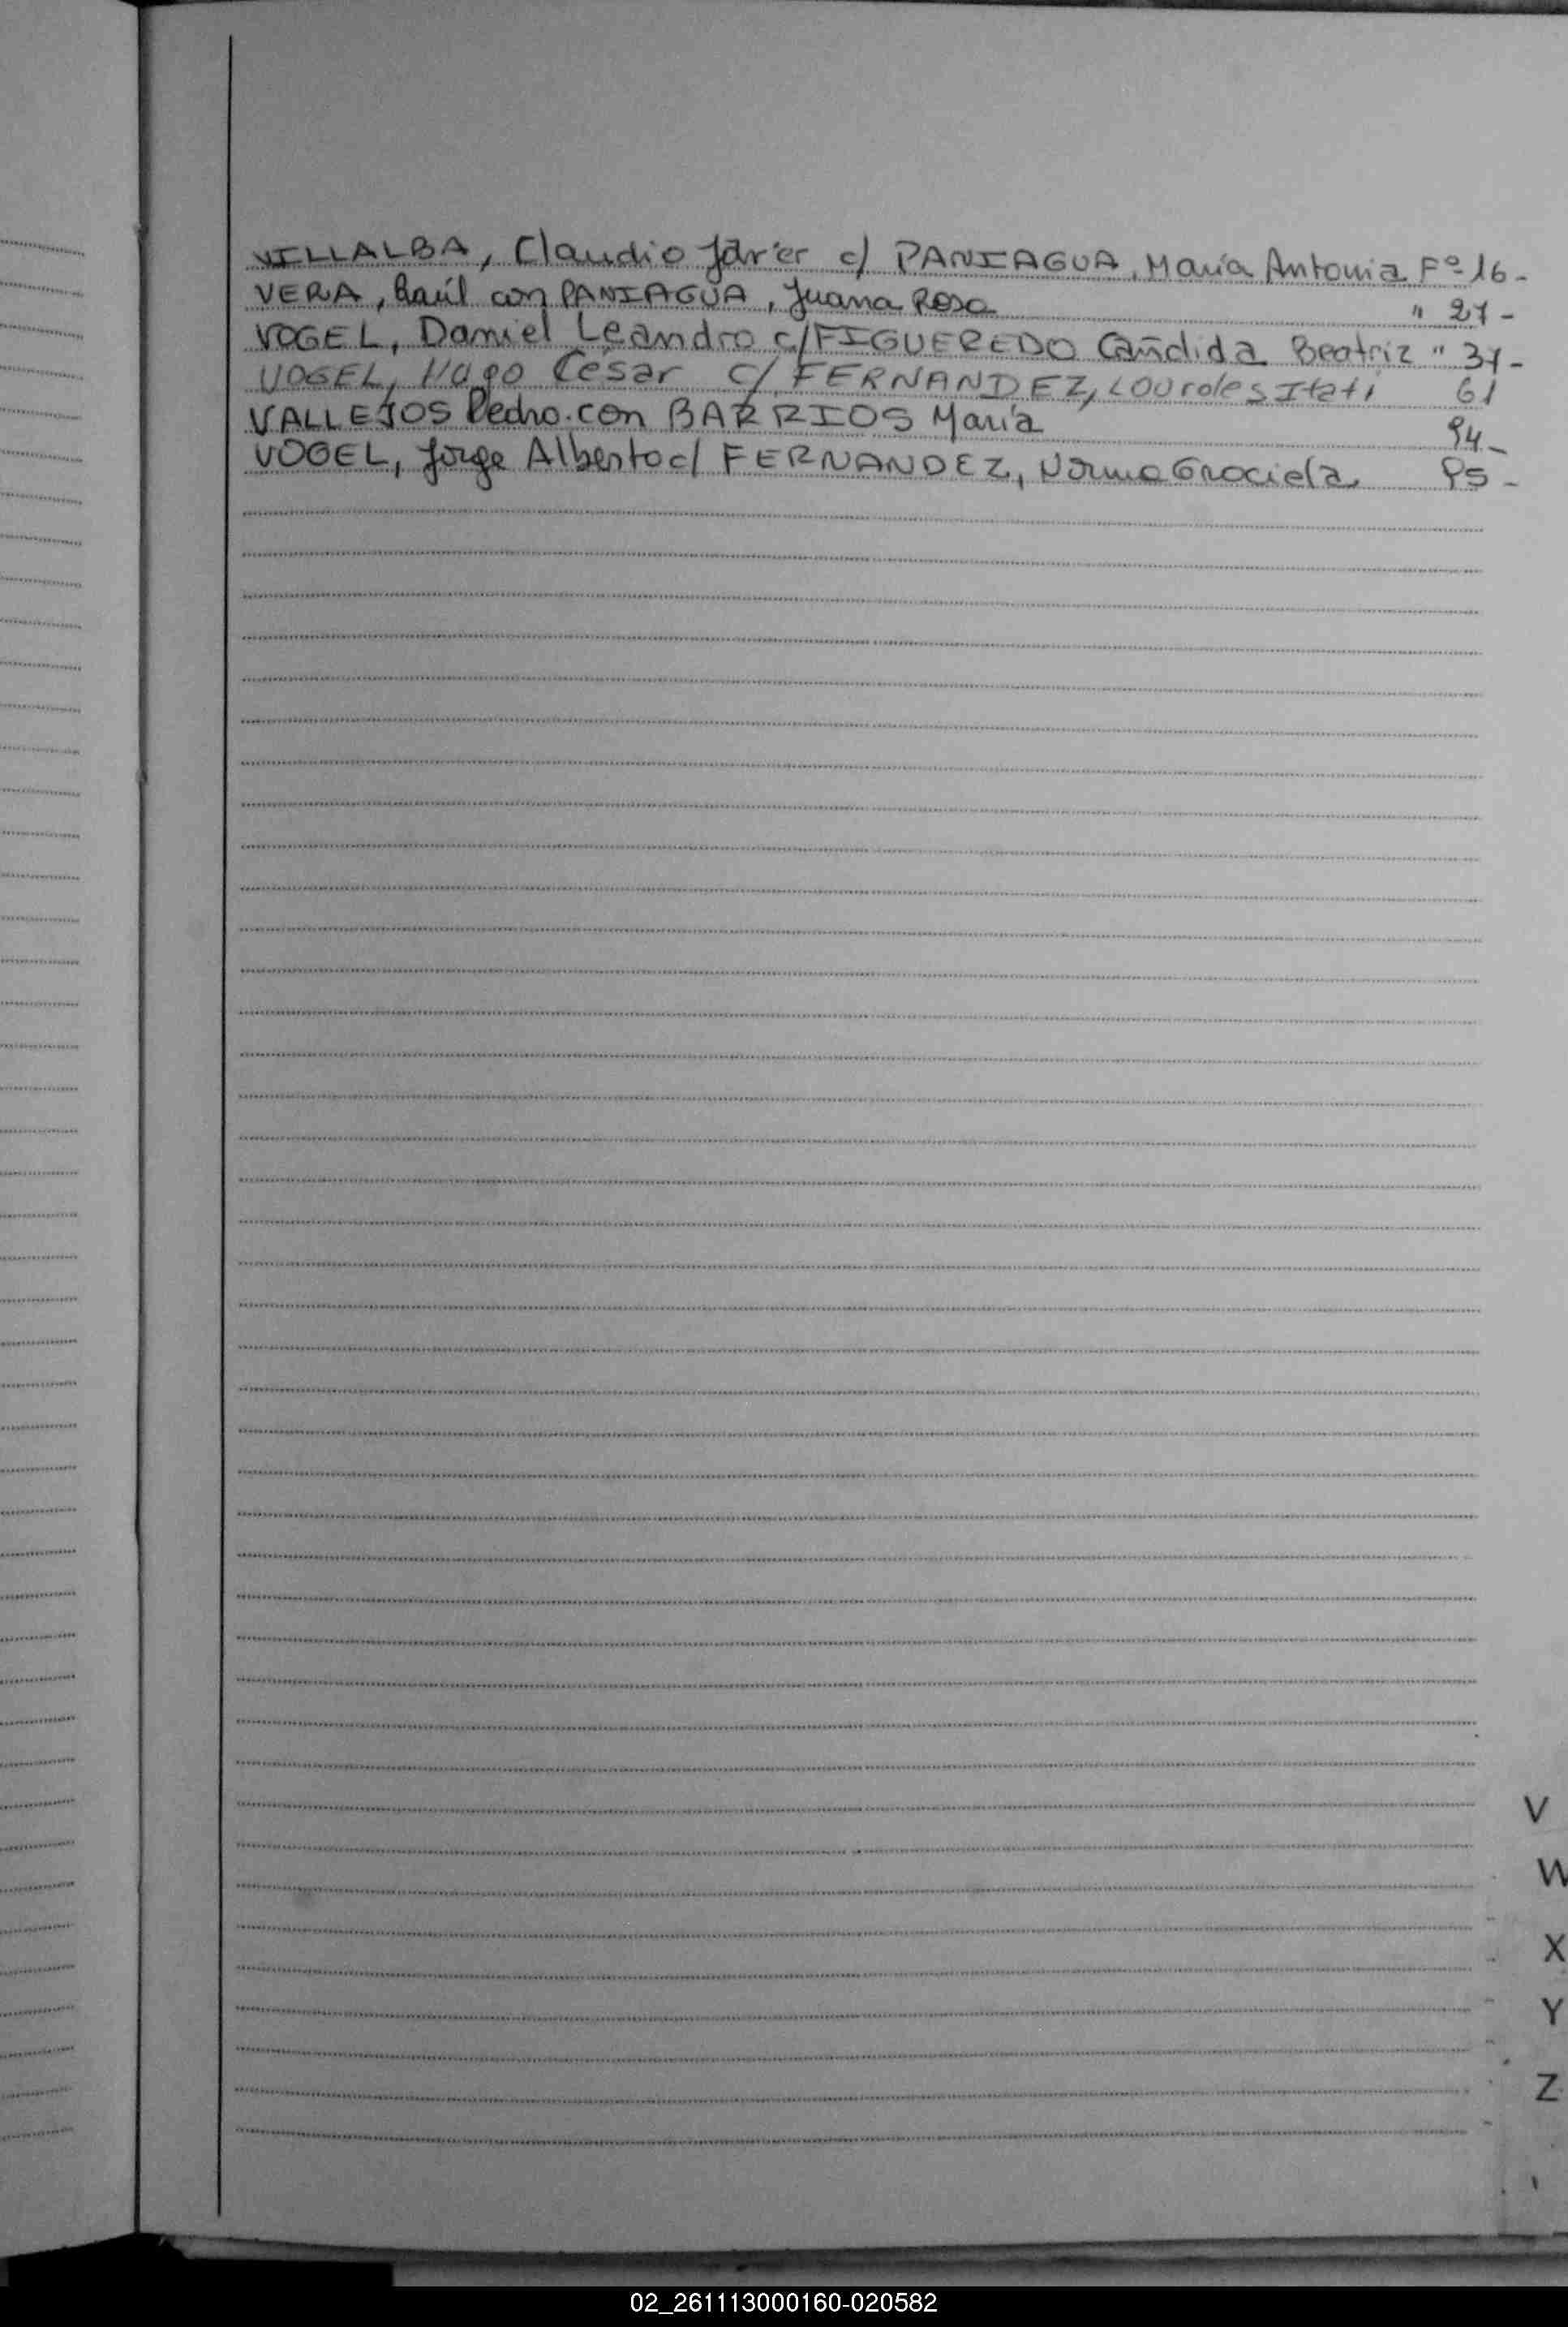 VILLALBA, Claudio Javier c/ PANIAGUA, María Antonia Fº 16-
VERA, Raúl con PANIAGUA, Juana Rosa " 27-
VOGEL, Daniel Leandro c/FIGUEREDO Cañdida Beatriz " 37-
VOGEL, Hugo César c/ FERNANDEZ, Lourdes Itatí 61
VALLEJOS Pedro con BARRIOS María 94-
VOGEL, Jorge Alberto c/ FERNANDEZ, Norma Graciela 95-
V
W
X
Y
Z
02_261113000160-020582